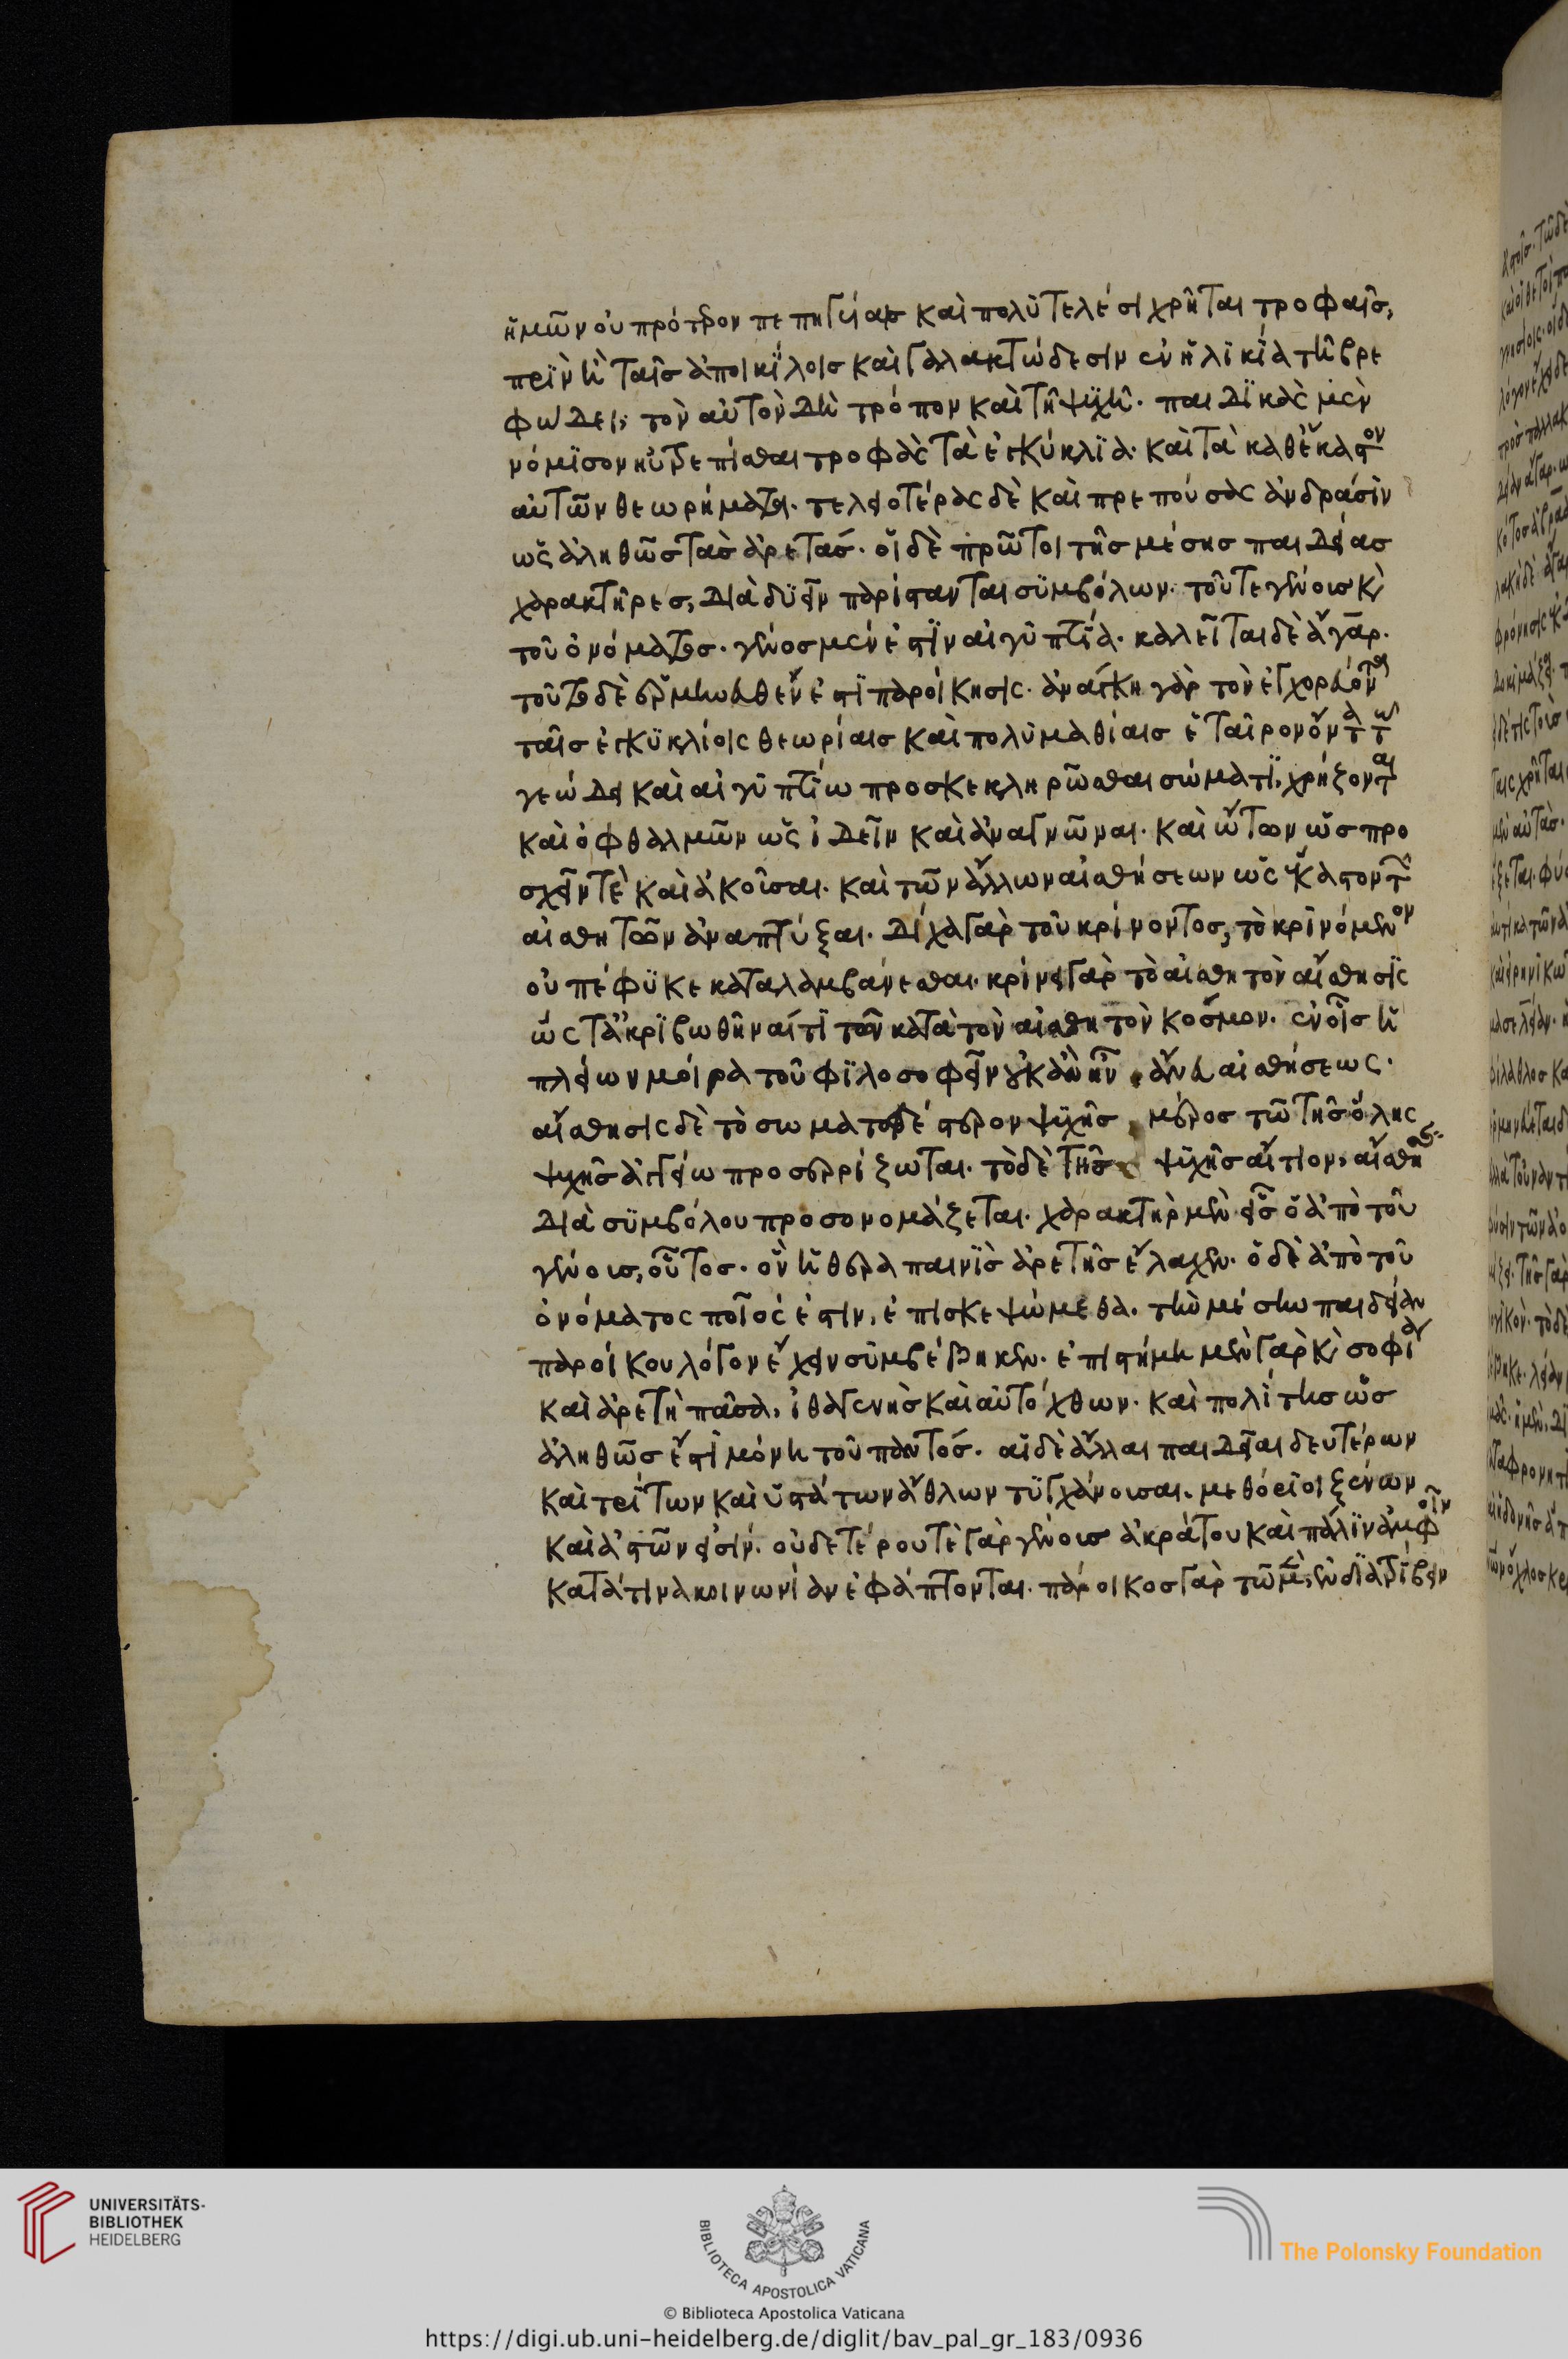 ἡμῶν οὐ πρότερον πεπηγυίαις καὶ πολυτελέσι χρῆται τροφαῖς,
πρὶν ἢ ταῖς ἀποικίλοις καὶ γαλακτώδεσιν ἐν ἡλικίᾳ τῇ βρε
φώδει, τὸν αὐτὸν δὴ τρόπον καὶ τῇ ψυχῇ. παιδικὰς μὲν
νόμισον ηὐτρεπίσθαι τροφὰς τὰ ἐγκύκλια. καὶ τὰ καθ' ἕκαστον
αὐτῶν θεωρήματα. τελειοτέρας δὲ καὶ πρεπούσας ἀνδράσιν
ὡς ἀληθῶς τὰς ἀρετάς. οἱ δὲ πρῶτοι τῆς μέσης παιδείας
χαρακτῆρες, διὰ δυεῖν παρίστανται συμβόλων. τοῦ τε γένους καὶ
τοῦ ὀνόματος. γένος μέν ἐστιν αἰγυπτία. καλεῖται δὲ ἄγαρ.
τοῦτο δὲ ἑρμηνευθέν ἐστι παροίκησις. ἀνάγκη γὰρ τὸν ἐγχορεύοντα
ταῖς ἐγκυκλίοις θεωρίαις καὶ πολυμαθίαις ἑταῖρον ὄντα τῷ
γεώδει καὶ αἰγυπτίῳ προσκεκληρῶσθαι σώματι, χρήζοντα
καὶ ὀφθαλμῶν ὡς ἰδεῖν καὶ ἀναγνῶναι. καὶ ὤτων ὡς προ
σχεῖν τὲ καὶ ἀκοῦσαι. καὶ τῶν ἄλλων αἰσθήσεων ὡς ἕκαστον τῶν
αἰσθητῶν ἀναπτύξαι. δίχα γὰρ τοῦ κρίνοντος, τὸ κρινόμενον
οὐ πέφυκε καταλαμβάνεσθαι. κρίνει γὰρ τὸ αἰσθητὸν αἴσθησις
ὥς τ' ἀκριβωθῆναί τι τῶν κατὰ τὸν αἰσθητὸν κόσμον. ἐν οἷς ἡ
πλείων μοῖρα τοῦ φιλοσοφεῖν οὐκ ἂν ἦν ἄνευ αἰσθήσεως.
αἴσθησις δὲ τὸ σωματοειδέστερον ψυχῆς μέρος τῷ τῆς ὅλης
ψυχῆς ἀγγείῳ προσερρίζωται. τὸ δὲ τῆς ψυχῆς αἴτιον, αἴσθησις
διὰ συμβόλου προσονομάζεται. χαρακτὴρ μὲν εἷς ὁ ἀπὸ τοῦ
γένους, οὗτος. ὃν ἡ θεραπαινὶς ἀρετῆς ἔλαχεν. ὁ δὲ ἀπὸ τοῦ
ὀνόματος ποῖός ἐστιν, ἐπισκεψώμεθα. τὴν μέσην παιδείαν
παροίκου λόγον ἔχειν συμβέβηκεν. ἐπιστήμη μὲν γὰρ καὶ σοφία
καὶ ἀρετὴ πᾶσα, ἰθαγενὴς καὶ αὐτόχθων. καὶ πολίτης ὡς
ἀληθῶς ἔστι μόνη τοῦ παντός. αἱ δὲ ἄλλαι παιδεῖαι δευτέρων
καὶ τρίτων καὶ ὑστάτων ἄθλων τυγχάνουσαι. μεθόριοι ξένων
καὶ ἀστῶν εἰσίν. οὐδετέρου τὲ γὰρ γένους ἀκράτου καὶ πάλιν ἀμφοῖν
κατά τινα κοινωνίαν ἐφάπτονται. πάροικος γὰρ τῷ μὲν ἐνδιατρίβειν
UNIVERSITÄTS-
BIBLIOTHEK
HEIDELBERG
BIBLIOTECA APOSTOLICA VATICANA
The Polonsky Foundation
© Biblioteca Apostolica Vaticana
https://digi.ub.uni-heidelberg.de/diglit/bav_pal_gr_183/0936